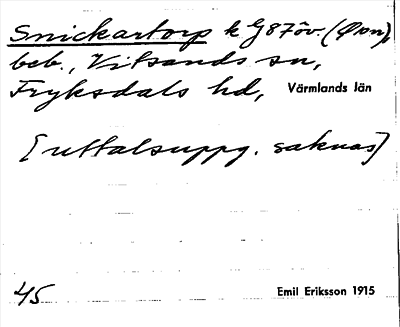 Snickartorp k G87öv. (Öm),
beb., Vitsands sn,
Fryksdals hd, Värmlands län
[uttalsuppg. saknas]
45 Emil Eriksson 1915